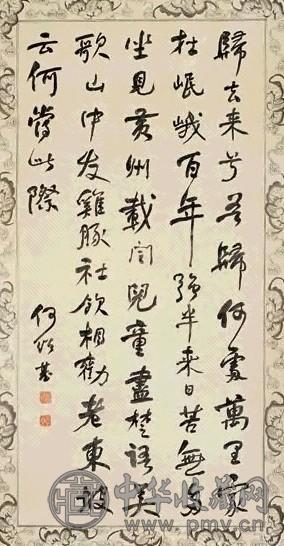 歸去来兮吾歸何處萬里家
在岷峨百年強半来日苦無多
坐見黄州載閏兒童盡楚語吴
歌山中友雞豚社飲相勸老東坡
云何當此際
何紹基
中华收藏网
www.pmv.cn